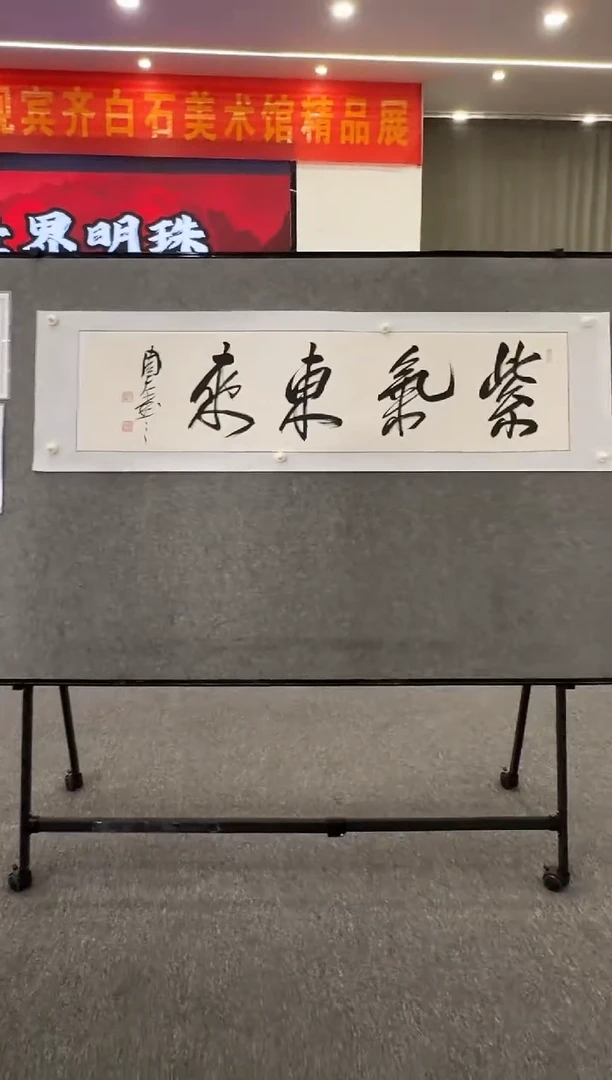 宾齐白石美术馆精品展
界明珠
紫氣東來